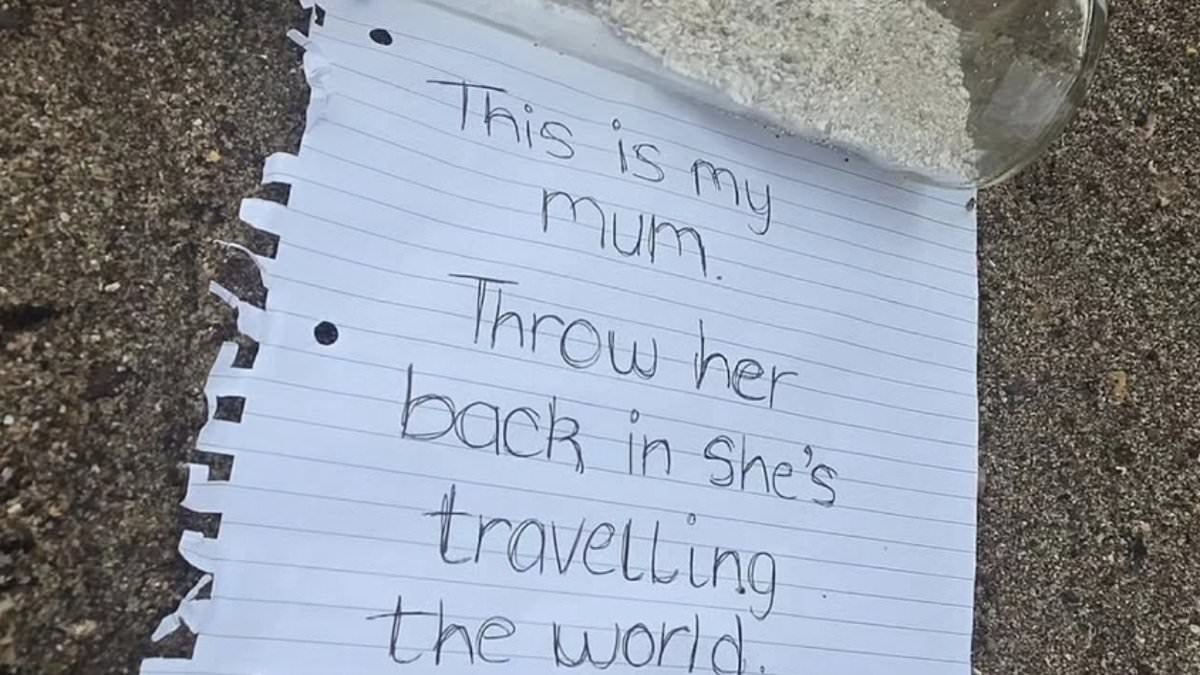 This is my
mum.
Throw her
back in she's
travelling
the world.